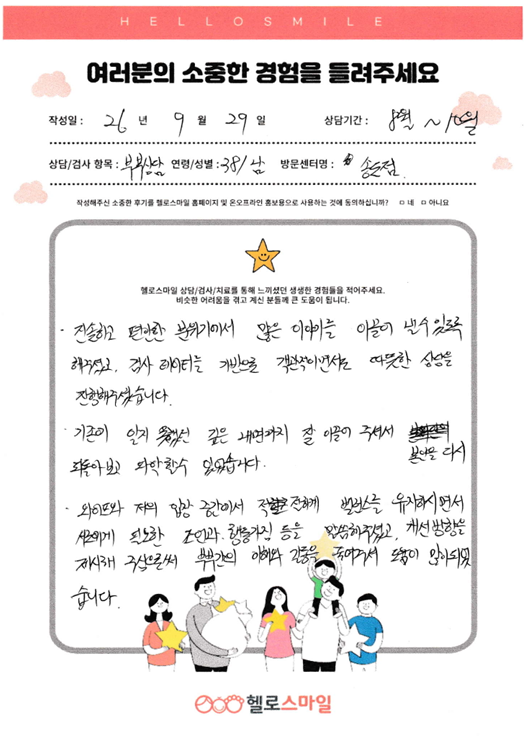 HELLOSMILE
여러분의 소중한 경험을 들려주세요
작성일 : 26 년 9 월 29 일 상담기간 : 8월 ~ 10월
상담/검사 항목 : 부부상담 연령/성별 : 38/남 방문센터명 : 송도점
작성해주신 소중한 후기를 헬로스마일 홈페이지 및 온오프라인 홍보용으로 사용하는 것에 동의하십니까? ㅁ 네 ㅁ 아니요
헬로스마일 상담/검사/치료를 통해 느끼셨던 생생한 경험들을 적어주세요.
비슷한 어려움을 겪고 계신 분들께 큰 도움이 됩니다.
· 진솔하고 편안한 분위기에서 많은 이야기를 이끌어 낼 수 있도록
해주셨고, 검사 데이터를 기반으로 객관적이면서도 따뜻한 상담을
진행해주셨습니다.
· 기존에 알지 못했던 깊은 내면까지 잘 이끌어 주셔서 본인을 다시
되돌아보고 파악할 수 있었습니다.
· 와이프와 저의 입장 중간에서 적절하게 밸런스를 유지하시면서
서로에게 필요한 조언과 행동가짐 등을 말씀해주셨고, 개선방향을
제시해 주심으로써 부부간의 이해와 갈등을 풀어가서 도움이 많이 되었
습니다.
헬로스마일